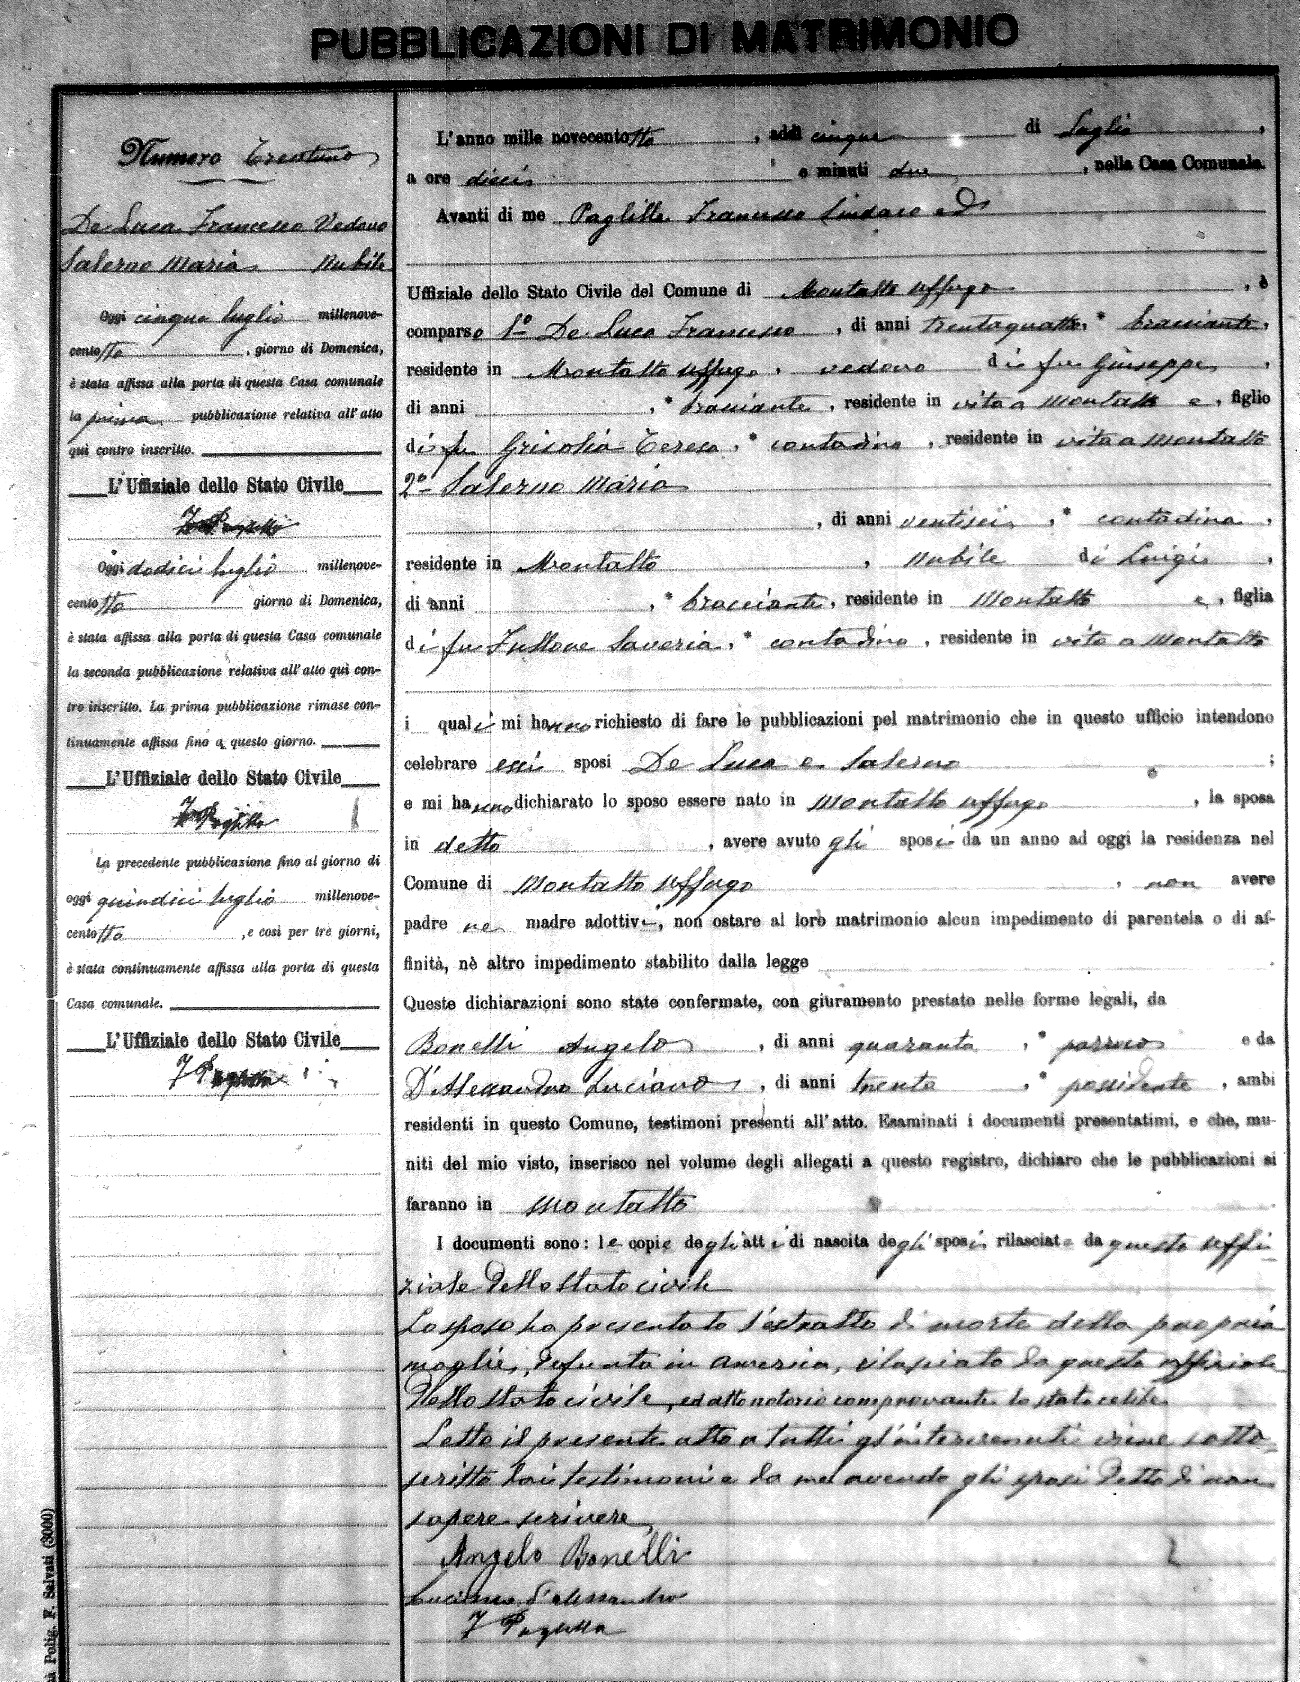 PUBBLICAZIONI DI MATRIMONIO
Numero Trentuno
De Luca Francesco Vedovo
Salerno Maria Nubile
Oggi cinque luglio millenove-
centotto, giorno di Domenica,
è stata affissa alla porta di questa Casa comunale
la prima pubblicazione relativa all'atto
quì contro inscritto.
L'Uffiziale dello Stato Civile
Oggi dodici luglio millenove-
centotto giorno di Domenica,
è stata affissa alla porta di questa Casa comunale
la seconda pubblicazione relativa all'atto quì con-
tro inscritto. La prima pubblicazione rimase con-
tinuamente affissa fino a questo giorno.
L'Uffiziale dello Stato Civile
La precedente pubblicazione fino al giorno di
oggi quindici luglio millenove-
centotto, e così per tre giorni,
è stata continuamente affissa alla porta di questa
Casa comunale.
L'Uffiziale dello Stato Civile
L'anno mille novecentotto, addì cinque di Luglio,
a ore dieci e minuti due, nella Casa Comunale.
Avanti di me Francesco Sindaco ed
Uffiziale dello Stato Civile del Comune di Montalto Uffugo, è
comparso 1º De Luca Francesco, di anni trentaquattro, * bracciante,
residente in Montalto Uffugo, vedovo di fu Giuseppe,
di anni , * bracciante, residente in vita a Montalto e, figlio
di fu Grisolia Teresa, * contadina, residente in vita a Montalto
2º Salerno Maria
, di anni ventisei, * contadina,
residente in Montalto, nubile di Luigi,
di anni , * bracciante, residente in Montalto e, figlia
di fu Saveria, * contadina, residente in vita a Montalto
i quali mi hanno richiesto di fare le pubblicazioni pel matrimonio che in questo ufficio intendono
celebrare essi sposi De Luca e Salerno ;
e mi hanno dichiarato lo sposo essere nato in Montalto Uffugo, la sposa
in detto, avere avuto gli sposi da un anno ad oggi la residenza nel
Comune di Montalto Uffugo, non avere
padre ne madre adottivi, non ostare al loro matrimonio alcun impedimento di parentela o di af-
finità, nè altro impedimento stabilito dalla legge
Queste dichiarazioni sono state confermate, con giuramento prestato nelle forme legali, da
Bonelli Angelo, di anni quaranta, * e da
D'Alessandro Luciano, di anni trenta, * possidente, ambi
residenti in questo Comune, testimoni presenti all'atto. Esaminati i documenti presentatimi, e che, mu-
niti del mio visto, inserisco nel volume degli allegati a questo registro, dichiaro che le pubblicazioni si
faranno in Montalto
I documenti sono: le copie degli atti di nascita degli sposi, rilasciate da questo uffi-
ziale dello stato civile
Lo sposo ha presentato l'estratto di morte della propria
moglie, defunta in America, rilasciato da questo uffiziale
dello stato civile, ed atto notorio comprovante lo stato celibe
Letto il presente atto a tutti gl'intervenuti viene sotto-
scritto dai testimoni e da me avendo gli sposi detto di non
sapere scrivere,
Angelo Bonelli
Luciano d'Alessandro
Polig. F. Salvati (3000)